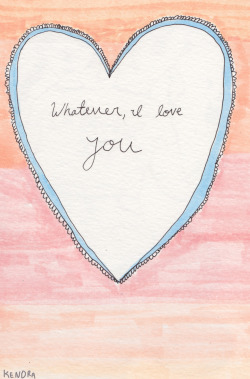 Whatever, I love
you
KENDRA